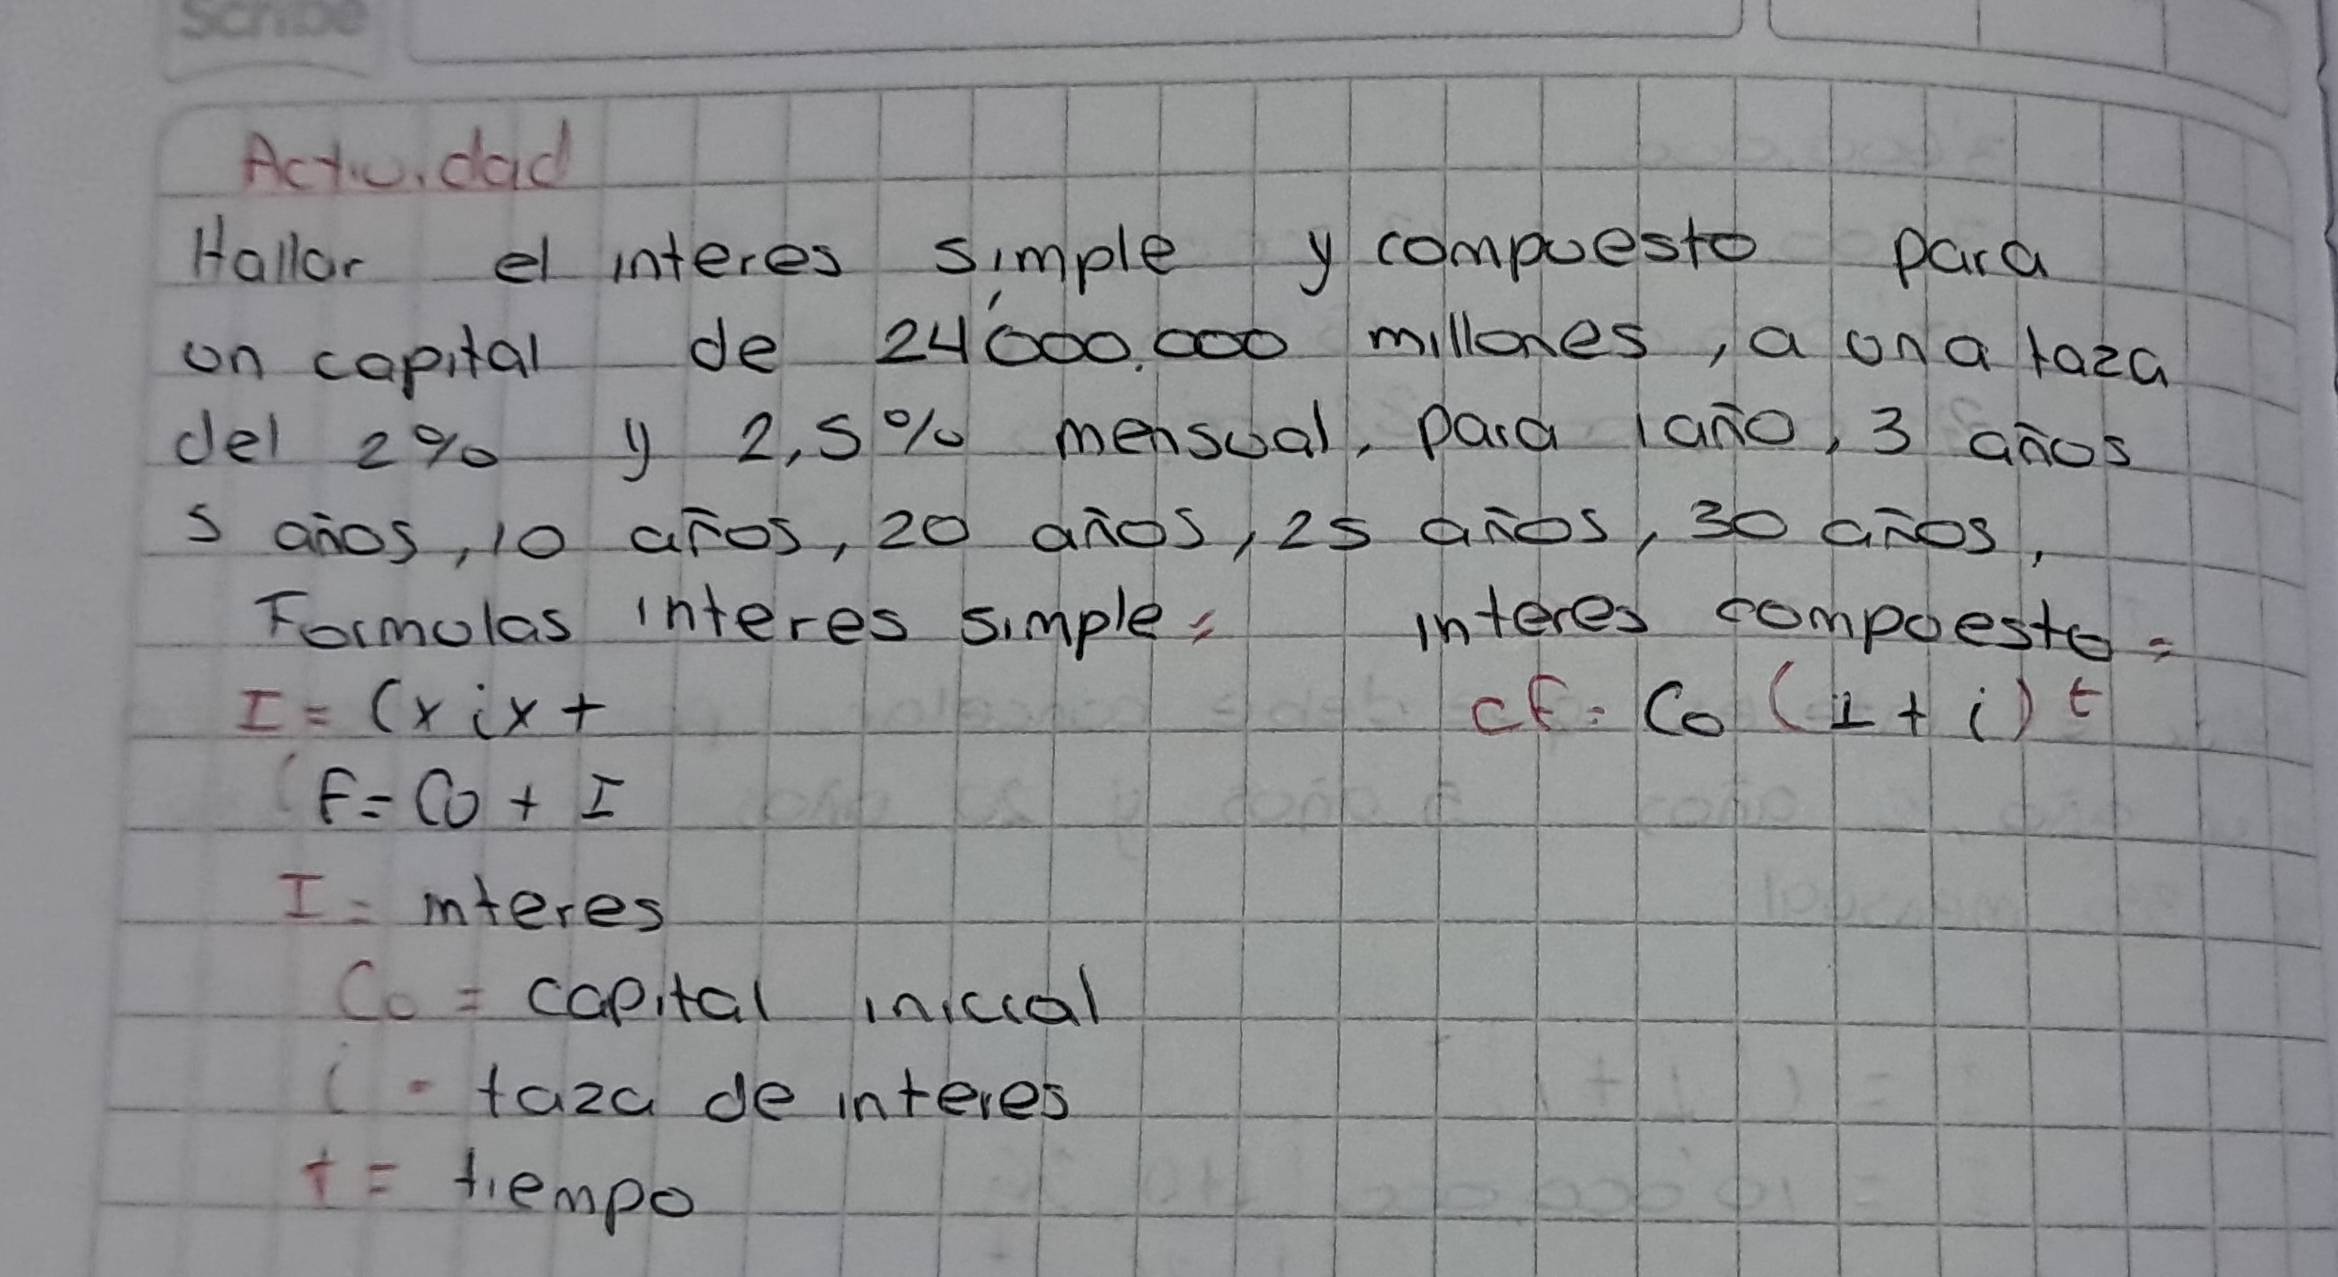 Scribe
Actividad
Hallar el interes simple y compuesto para
un capital de 24'000.000 millones, a una taza
del 2% y 2,5% mensual, para 1 año, 3 años
5 años, 10 años, 20 años, 25 años, 30 años,
Formulas interes simple= interes compuesto=
I = C x i x t CF = Co (1 + i) t
CF = Co + I
I = interes
Co = capital inicial
i = taza de interes
t = tiempo